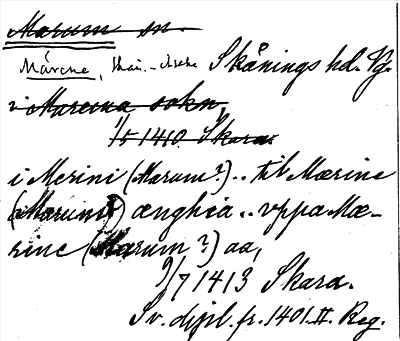 Marum sn.
Märene, Skånings hd. Vg.
i Maruna sokn,
1/5 1410 Skara.
i Merini (Marum?).. til Mærine
(Marum?) ænghia .. vppa Mæ-
rine (Marum?) aa,
9/7 1413 Skara.
Sv. dipl. fr. 1401. II. Reg.